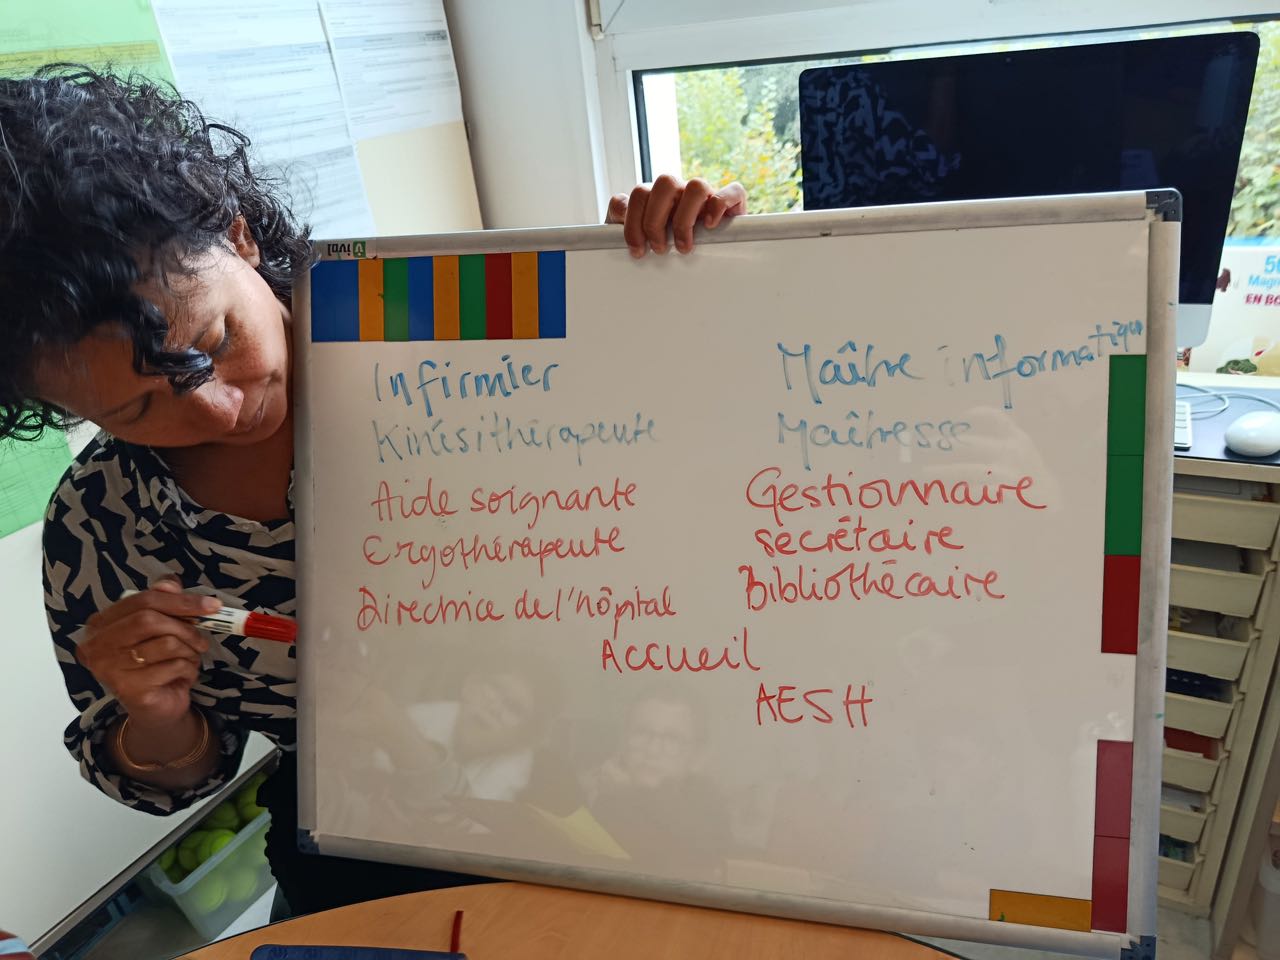 Infirmier
Kinésithérapeute
Aide soignante
Ergothérapeute
Directrice de l'hôpital
Maître informatique
Maîtresse
Gestionnaire
secrétaire
Bibliothécaire
Accueil
AESH
EN BO